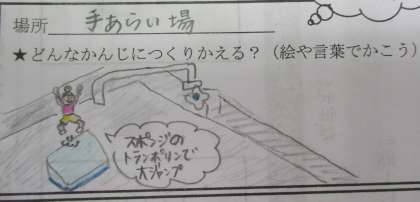 場所 手あらい場
★どんなかんじにつくりかえる？（絵や言葉でかこう）
スポンジの
トランポリンで
大ジャンプ